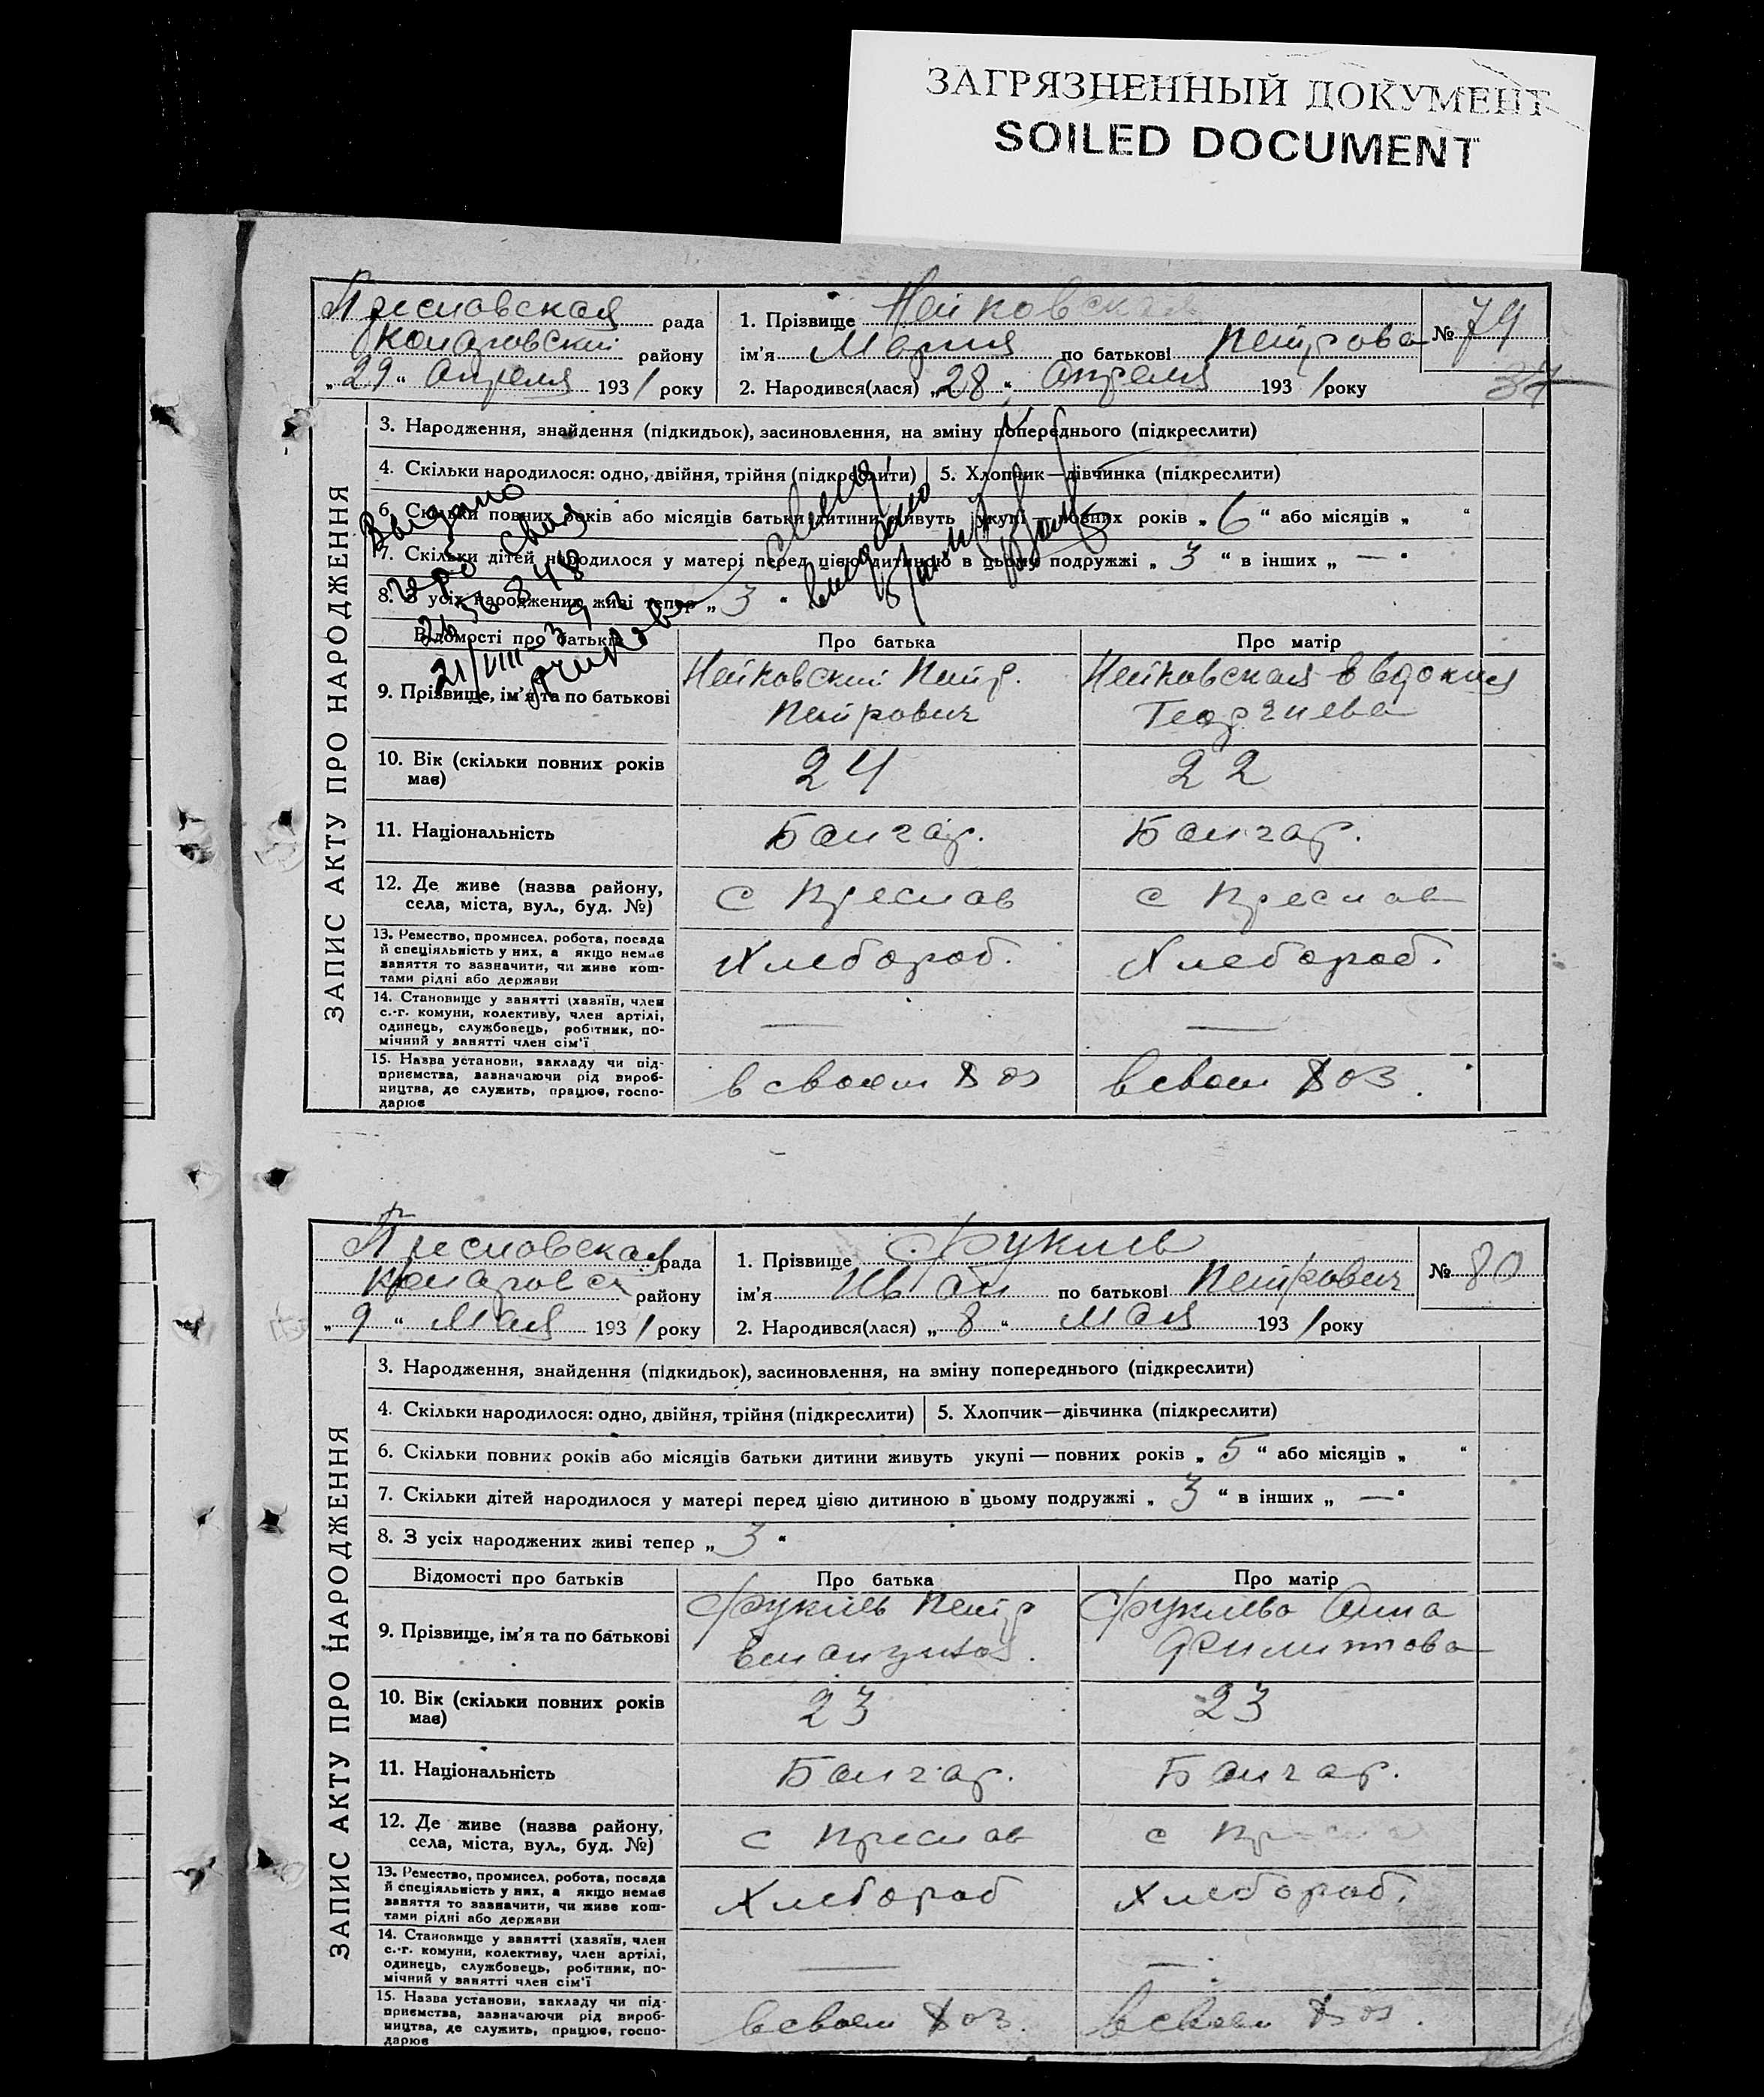 ЗАГРЯЗНЕННЫЙ ДОКУМЕНТ
SOILED DOCUMENT
Преславская рада
района
„29“ Апреля 1931 року
1. Прізвище Нейковская
ім'я Мария по батькові Петрова
2. Народився(лася) „28“ апреля 1931 року
№ 79
34
ЗАПИС АКТУ ПРО НАРОДЖЕННЯ
3. Народження, знайдення (підкидьок), засиновлення, на зміну попереднього (підкреслити)
4. Скільки народилося: одно, двійня, трійня (підкреслити) 5. Хлопчик—дівчинка (підкреслити)
6. Скільки повних років або місяців батьки дитини живуть укупі — повних років „6“ або місяців „ “
7. Скільки дітей народилося у матері перед цією дитиною в цьому подружжі „3“ в інших „—“
8. З усіх народжених живі тепер „3“
Выдано
21/VIII
Відомості про батьків Про батька Про матір
9. Прізвище, ім'я та по батькові
Нейковский Петр.
Петрович
Нейковская Евдокия
Георгиева
10. Вік (скільки повних років має) 24 22
11. Національність Болгар. Болгар.
12. Де живе (назва району, села, міста, вул., буд. №) с Преслав с Преслав
13. Ремество, промисел, робота, посада
й спеціяльність у них, а якщо немає
заняття то зазначити, чи живе кош-
тами рідні або держави
Хлебороб. Хлебороб.
14. Становище у занятті (хазяїн, член
с.-г. комуни, колективу, член артілі,
одинець, службовець, робітник, по-
мічний у занятті член сім'ї
— —
15. Назва установи, закладу чи під-
приємства, зазначаючи рід вироб-
ництва, де служить, працює, госпо-
дарює
в своем хоз в своем хоз.
Преславская рада
района
„9“ Мая 1931 року
1. Прізвище Фуклев
ім'я Иван по батькові Петрович
2. Народився(лася) „8“ мая 1931 року
№ 80
ЗАПИС АКТУ ПРО НАРОДЖЕННЯ
3. Народження, знайдення (підкидьок), засиновлення, на зміну попереднього (підкреслити)
4. Скільки народилося: одно, двійня, трійня (підкреслити) 5. Хлопчик—дівчинка (підкреслити)
6. Скільки повних років або місяців батьки дитини живуть укупі — повних років „5“ або місяців „ “
7. Скільки дітей народилося у матері перед цією дитиною в цьому подружжі „3“ в інших „—“
8. З усіх народжених живі тепер „3“
Відомості про батьків Про батька Про матір
9. Прізвище, ім'я та по батькові
Фуклев Петр
Фуклева Анна
Филиппова
10. Вік (скільки повних років має) 23 23
11. Національність Болгар. Болгар.
12. Де живе (назва району, села, міста, вул., буд. №) с Преслав с
13. Ремество, промисел, робота, посада
й спеціяльність у них, а якщо немає
заняття то зазначити, чи живе кош-
тами рідні або держави
Хлебороб Хлебороб.
14. Становище у занятті (хазяїн, член
с.-г. комуни, колективу, член артілі,
одинець, службовець, робітник, по-
мічний у занятті член сім'ї
— —
15. Назва установи, закладу чи під-
приємства, зазначаючи рід вироб-
ництва, де служить, працює, госпо-
дарює
в своем хоз. в своем хоз.